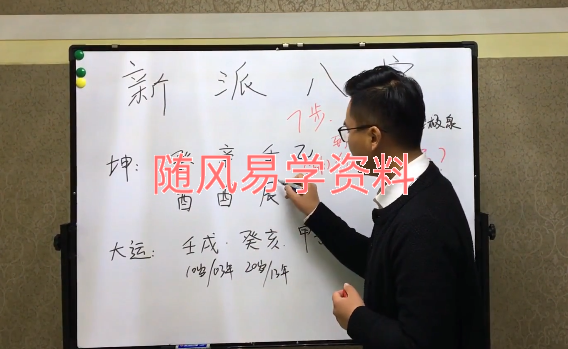 新派八字
7步.
极泉
坤: 癸 辛 壬
随风易学资料
酉 酉 辰
大运: 壬戌. 癸亥. 甲
10岁/03年 20岁/13年